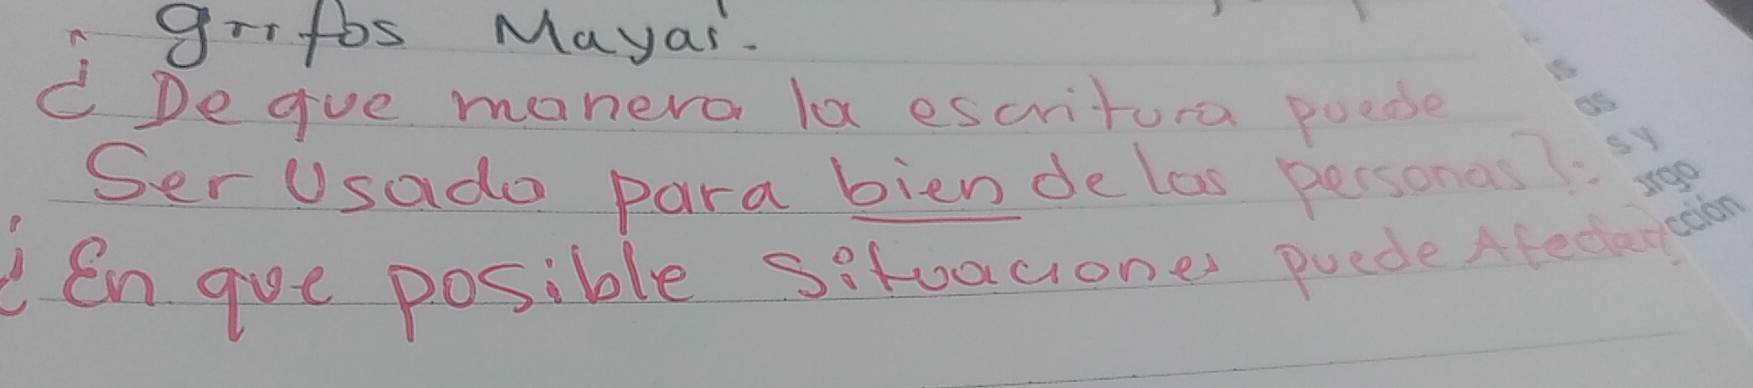 grifos Mayas.
¿ De que manera la escritura puede
Ser Usada para bien de las personas?:
¿ En que posible situaciones puede Afectar?
os
sy
argo
cción